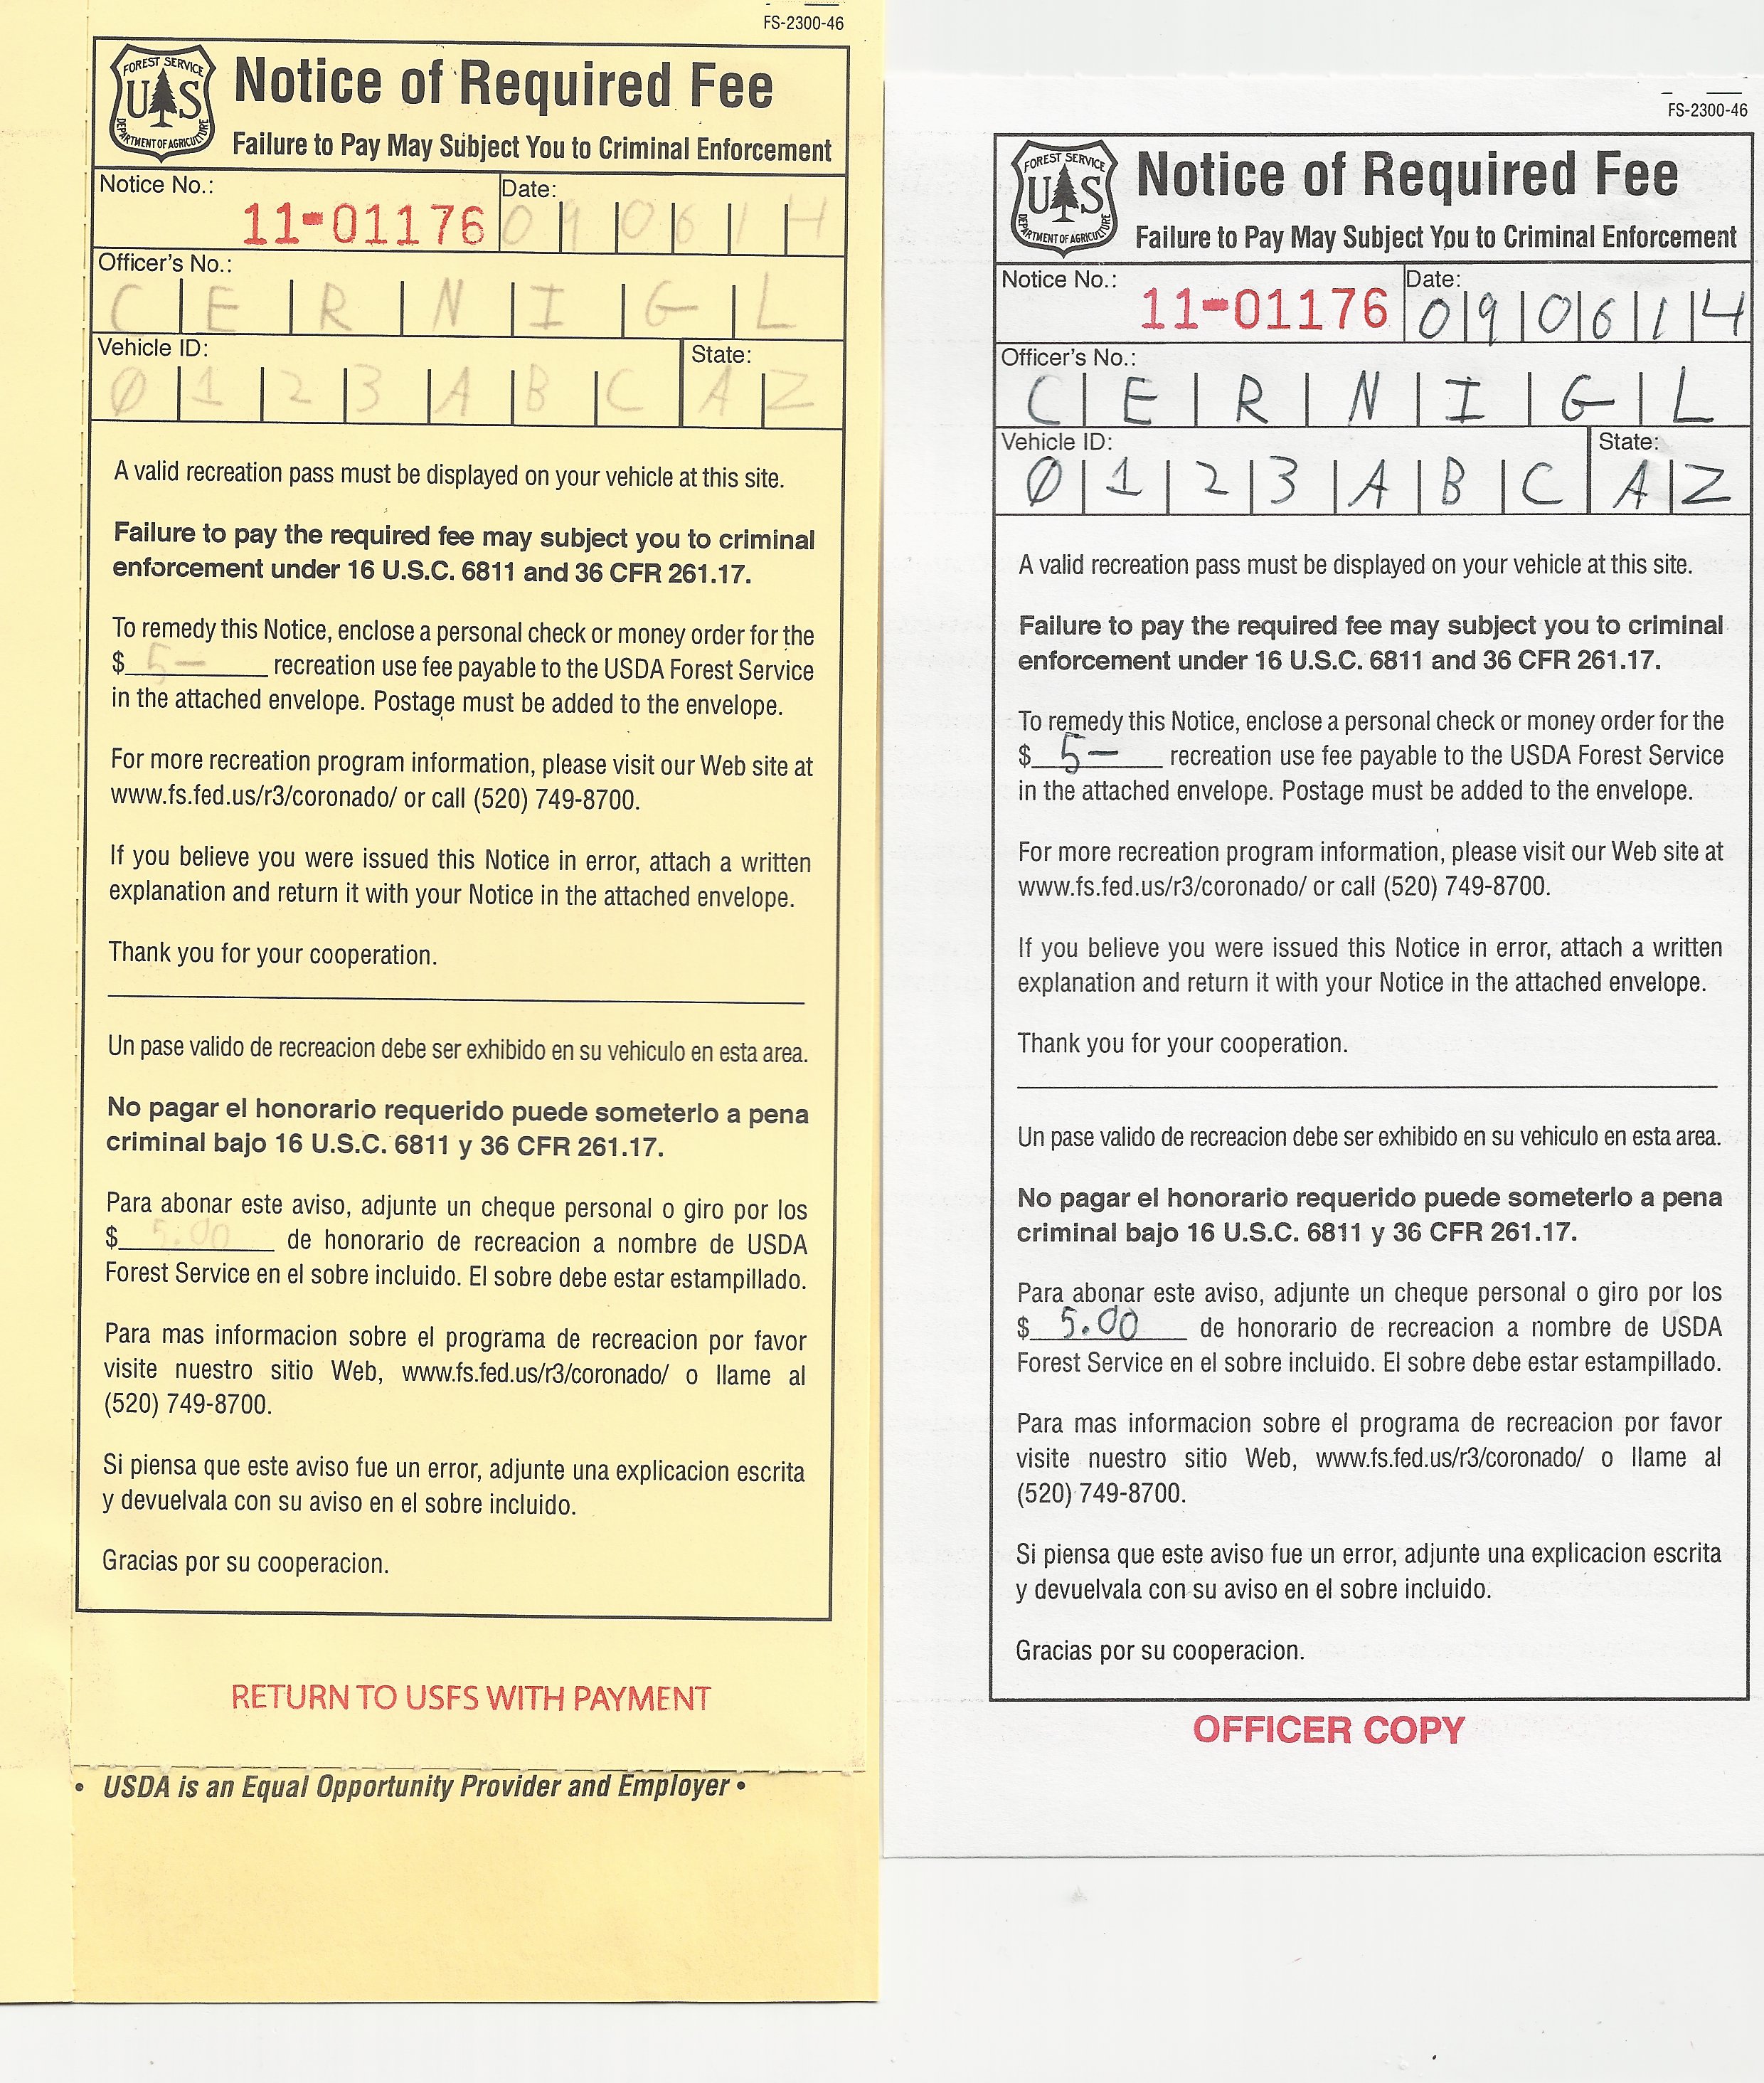 FS-2300-46
FOREST SERVICE
U S
DEPARTMENT OF AGRICULTURE
Notice of Required Fee
Failure to Pay May Subject You to Criminal Enforcement
Notice No.: 11-01176 Date: 090614
Officer's No.:
C E R N I G L
Vehicle ID: State:
0 1 2 3 A B C A Z
A valid recreation pass must be displayed on your vehicle at this site.
Failure to pay the required fee may subject you to criminal
enforcement under 16 U.S.C. 6811 and 36 CFR 261.17.
To remedy this Notice, enclose a personal check or money order for the
$ 5— recreation use fee payable to the USDA Forest Service
in the attached envelope. Postage must be added to the envelope.
For more recreation program information, please visit our Web site at
www.fs.fed.us/r3/coronado/ or call (520) 749-8700.
If you believe you were issued this Notice in error, attach a written
explanation and return it with your Notice in the attached envelope.
Thank you for your cooperation.
Un pase valido de recreacion debe ser exhibido en su vehiculo en esta area.
No pagar el honorario requerido puede someterlo a pena
criminal bajo 16 U.S.C. 6811 y 36 CFR 261.17.
Para abonar este aviso, adjunte un cheque personal o giro por los
$ 5.00 de honorario de recreacion a nombre de USDA
Forest Service en el sobre incluido. El sobre debe estar estampillado.
Para mas informacion sobre el programa de recreacion por favor
visite nuestro sitio Web, www.fs.fed.us/r3/coronado/ o llame al
(520) 749-8700.
Si piensa que este aviso fue un error, adjunte una explicacion escrita
y devuelvala con su aviso en el sobre incluido.
Gracias por su cooperacion.
RETURN TO USFS WITH PAYMENT
• USDA is an Equal Opportunity Provider and Employer •
FS-2300-46
FOREST SERVICE
U S
DEPARTMENT OF AGRICULTURE
Notice of Required Fee
Failure to Pay May Subject You to Criminal Enforcement
Notice No.: 11-01176 Date: 090614
Officer's No.:
C E R N I G L
Vehicle ID: State:
0 1 2 3 A B C A Z
A valid recreation pass must be displayed on your vehicle at this site.
Failure to pay the required fee may subject you to criminal
enforcement under 16 U.S.C. 6811 and 36 CFR 261.17.
To remedy this Notice, enclose a personal check or money order for the
$ 5— recreation use fee payable to the USDA Forest Service
in the attached envelope. Postage must be added to the envelope.
For more recreation program information, please visit our Web site at
www.fs.fed.us/r3/coronado/ or call (520) 749-8700.
If you believe you were issued this Notice in error, attach a written
explanation and return it with your Notice in the attached envelope.
Thank you for your cooperation.
Un pase valido de recreacion debe ser exhibido en su vehiculo en esta area.
No pagar el honorario requerido puede someterlo a pena
criminal bajo 16 U.S.C. 6811 y 36 CFR 261.17.
Para abonar este aviso, adjunte un cheque personal o giro por los
$ 5.00 de honorario de recreacion a nombre de USDA
Forest Service en el sobre incluido. El sobre debe estar estampillado.
Para mas informacion sobre el programa de recreacion por favor
visite nuestro sitio Web, www.fs.fed.us/r3/coronado/ o llame al
(520) 749-8700.
Si piensa que este aviso fue un error, adjunte una explicacion escrita
y devuelvala con su aviso en el sobre incluido.
Gracias por su cooperacion.
OFFICER COPY